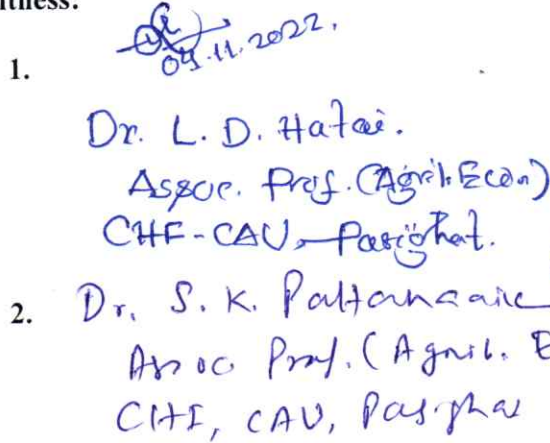 itness:
1.
04.11.2022.
Dr. L. D. Hatai.
Assoc. Prof. (Agril. Econ)
CHF-CAU, Pasighat.
2. Dr. S. K. Pattanaaik
Assoc Prof. (Agril. E
CHF, CAU, Pasighat